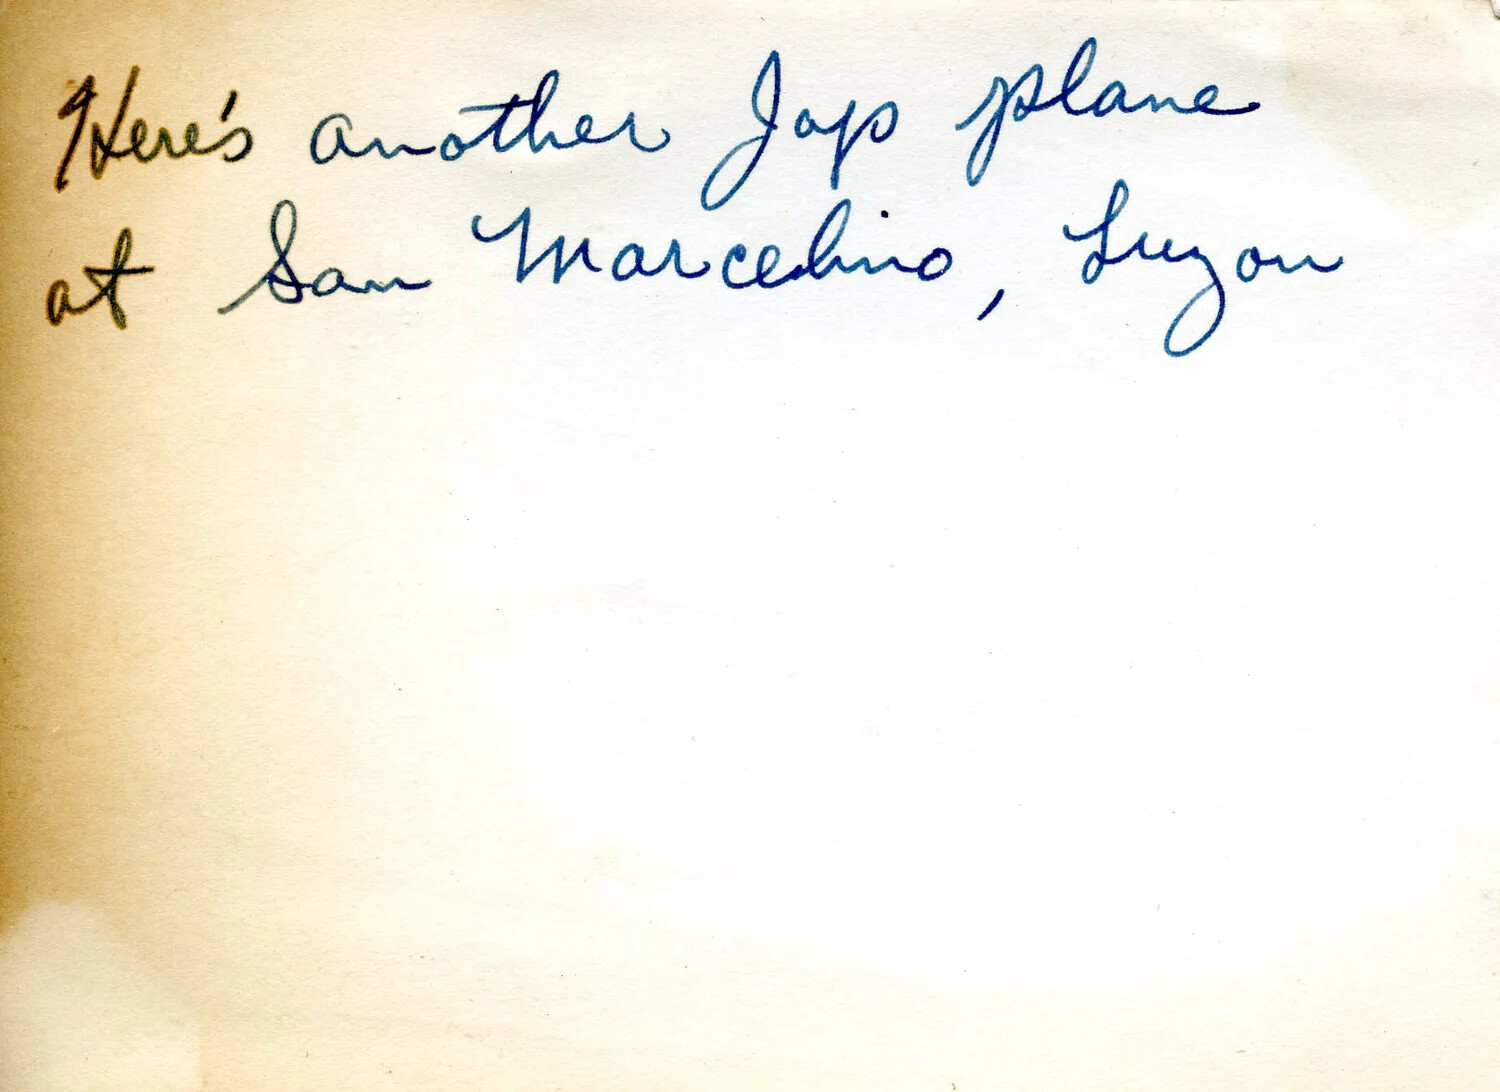 Here's another Japs plane
at San Marcelino, Luzon